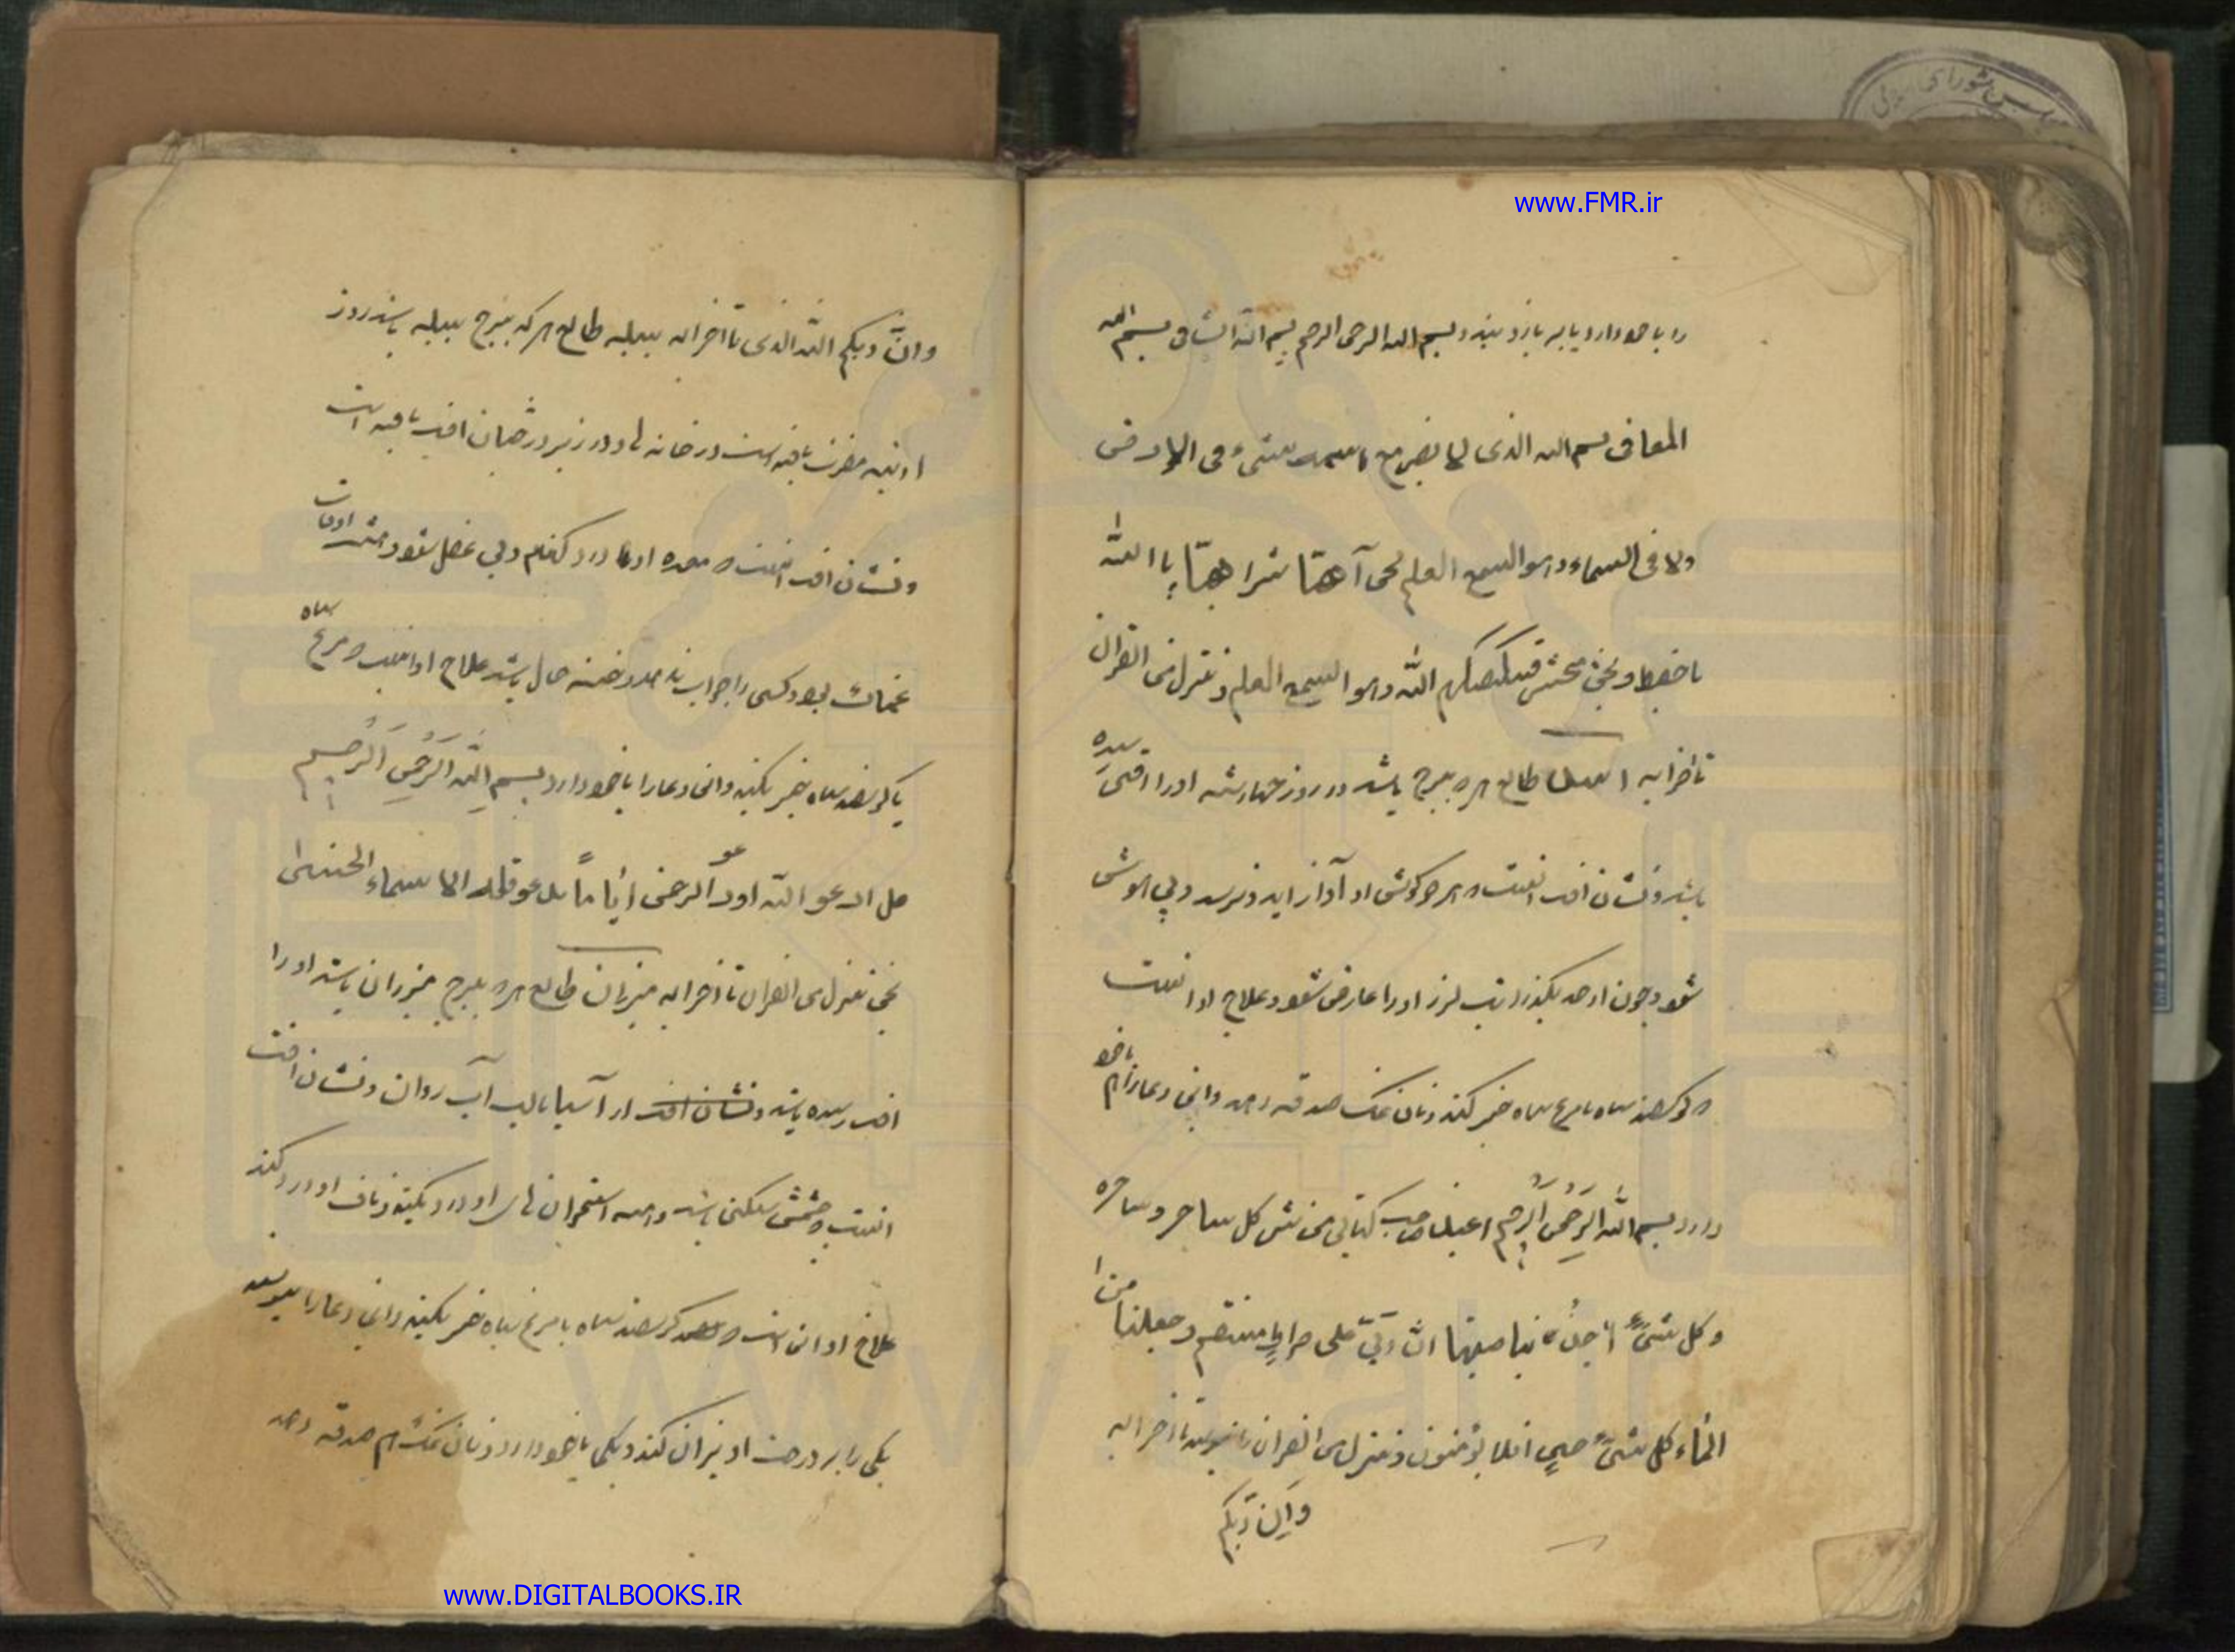 www.FMR.ir
را با خود دارد یا بر بازو بندد بسم الله الرحمن الرحیم بسم الله الشافی بسم الله
المعافی بسم الله الذی لا یضر مع اسمه شیء فی الارض
ولا فی السماء وهو السمیع العلیم بحق آهیّا شراهیّا یا الله
یا حفیظ و بحق فسیکفیکهم الله وهو السمیع العلیم و ننزل من القران
تا اخر ایه اسد طالع هرکه ببرج باشد در روز چهارشنبه او را افتی رسیده
باشد و نشان افت اینست که هر دو گوش او آواز اید و ترسد و بی هوش
شود و چون از حد بگذرد تب لرز او را عارض شود و علاج او اینست
که گوسفند سیاه یا مرغ سیاه خیر کند و نان نمک صدقه دهد و این دعا را هم با خود
دارد بسم الله الرحمن الرحیم کتابی من شر کل ساحر و ساحره
و کل شیء بناصیتها ان ربی علی صراط مستقیم و جعلنا من ا
الماء کل شیء حی افلا یؤمنون و ننزل من القران تا اخر ایه
وان ربکم
وان ربکم الله الذی تا اخر ایه سنبله طالع هر که ببرج سنبله باشد روز
ادینه مضرت یافته است در خانه یا در زیر درختان افت یافته است
و نشان افت اینست که معده او درد کند و بی عضل شود اوقات
غمناک بود و کسی را جواب ندهد و خسته حال باشد علاج او اینست که مرغ سیاه
یا گوسفند سیاه خیر بکند و این دعا را با خود دارد بسم الله الرحمن الرحیم
قل ادعو الله او دعو الرحمن ایاما تدعو فله الاسماء الحسنی
بحق ننزل من القران تا اخر ایه میزان طالع هرکه ببرج میزان باشد او را
افت رسیده باشد و نشان افت از آسیا یا لب آب روان و نشان افت
اینست چشمش سنگین باشد و همه استخوان های او درد بکند و ناف او درد کند
علاج او این است که گوسفند سیاه یا مرغ سیاه خیر بکند و این دعا را بنویسد
یکی را بر درخت اویزان کند و یکی با خود دارد و نان نمک هم صدقه دهد
www.DIGITALBOOKS.IR